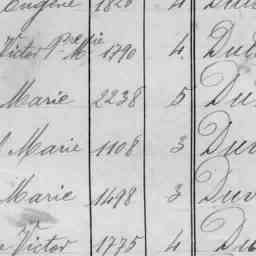 Eugène 1820 4
Victor 1790 4 Du
Marie 2238 5 Du
Marie 1108 3 Duv
Marie 1498 3 Duv
Victor 1775 4 Du